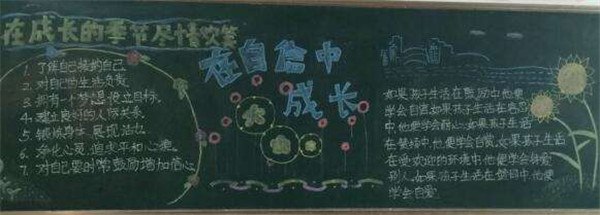 在成长的季节尽情欢笑
1. 了解自己接纳自己
2. 对自己的生活负责
3. 拥有一个梦想设立目标
4. 建立良好的人际关系
5. 锻炼身体展现活力
6. 净化心灵追求平和心境
7. 对自己要时常鼓励增加信心
在自信中
成长
如果孩子生活在鼓励中他便
学会自信如果孩子生活在容忍
中他便学会耐心如果孩子生活
在赞扬中他便学会自爱如果孩子生活
在受欢迎的环境中他便学会钟爱
别人如果孩子生活在赞同中他便
学会自爱